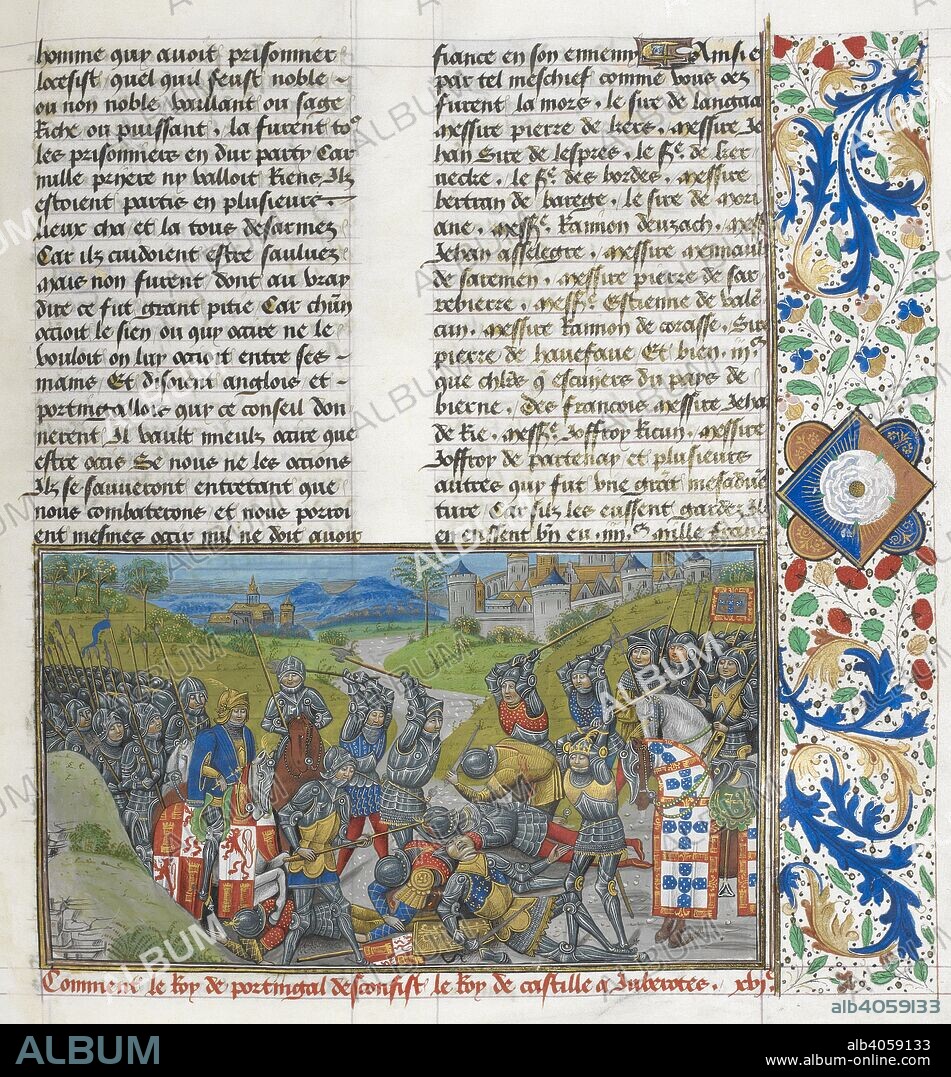 homme quy avoit prisonnier
locesist quel quil feust noble
ou non noble vaillant ou sage
Riche ou puissant. la furent to9
les prisonniers en dur party Car
nulle pryere ny valloit Riens Ilz
estoient partis en plusieurs
lieux cha et la tous desarmez
Car ilz cuidoient estre sauluez
mais non furent dont au vray
dire ce fut grant pitie Car chun
occioit le sien ou quy occire ne le
vouloit on luy occioit entre ses
mains Et disoient anglois et
portingallois quy ce conseil don
nerent Il vault mieulx occire que
estre occis Se nous ne les occions
Ilz se sauveront entretant que
nous combaterons et nous porroi
ent mesmes occir nul ne doit avoir
fiance en son ennemy Ainsi et
par tel meschief comme vous oez
furent la mors. le sire de
messire pierre de kers. messire Je
han Sire de lespres. le sr. de ker
necke. le sr. des bordes. messire
bertran de barege. le sire de mori
ane. messr. Raimon deuzach. mess
Jehan asselegre. messire mennault
de saremen. messire pierre de sar
rebierre. messr. Estienne de vale
cin. messire Raimon de corasse. Sire
pierre de haveface Et bien. iijc.
que chlrs q escuiers du pays de
bierne. des francois messire Jeha
de Rie. messr. Joffroy Ricun. messire
Joffroy de partenay et plusieurs
autres quy fut vne grāt mesaduē
ture Car silz les eussent gardez Ilz
en eussent bn eu. iiijc mille francs
Comment le Roy de portingal desconfist le Roy de castille a Juberotes. xvjc.
alb4059133
ALBUM
alb4059133
www.album-online.com